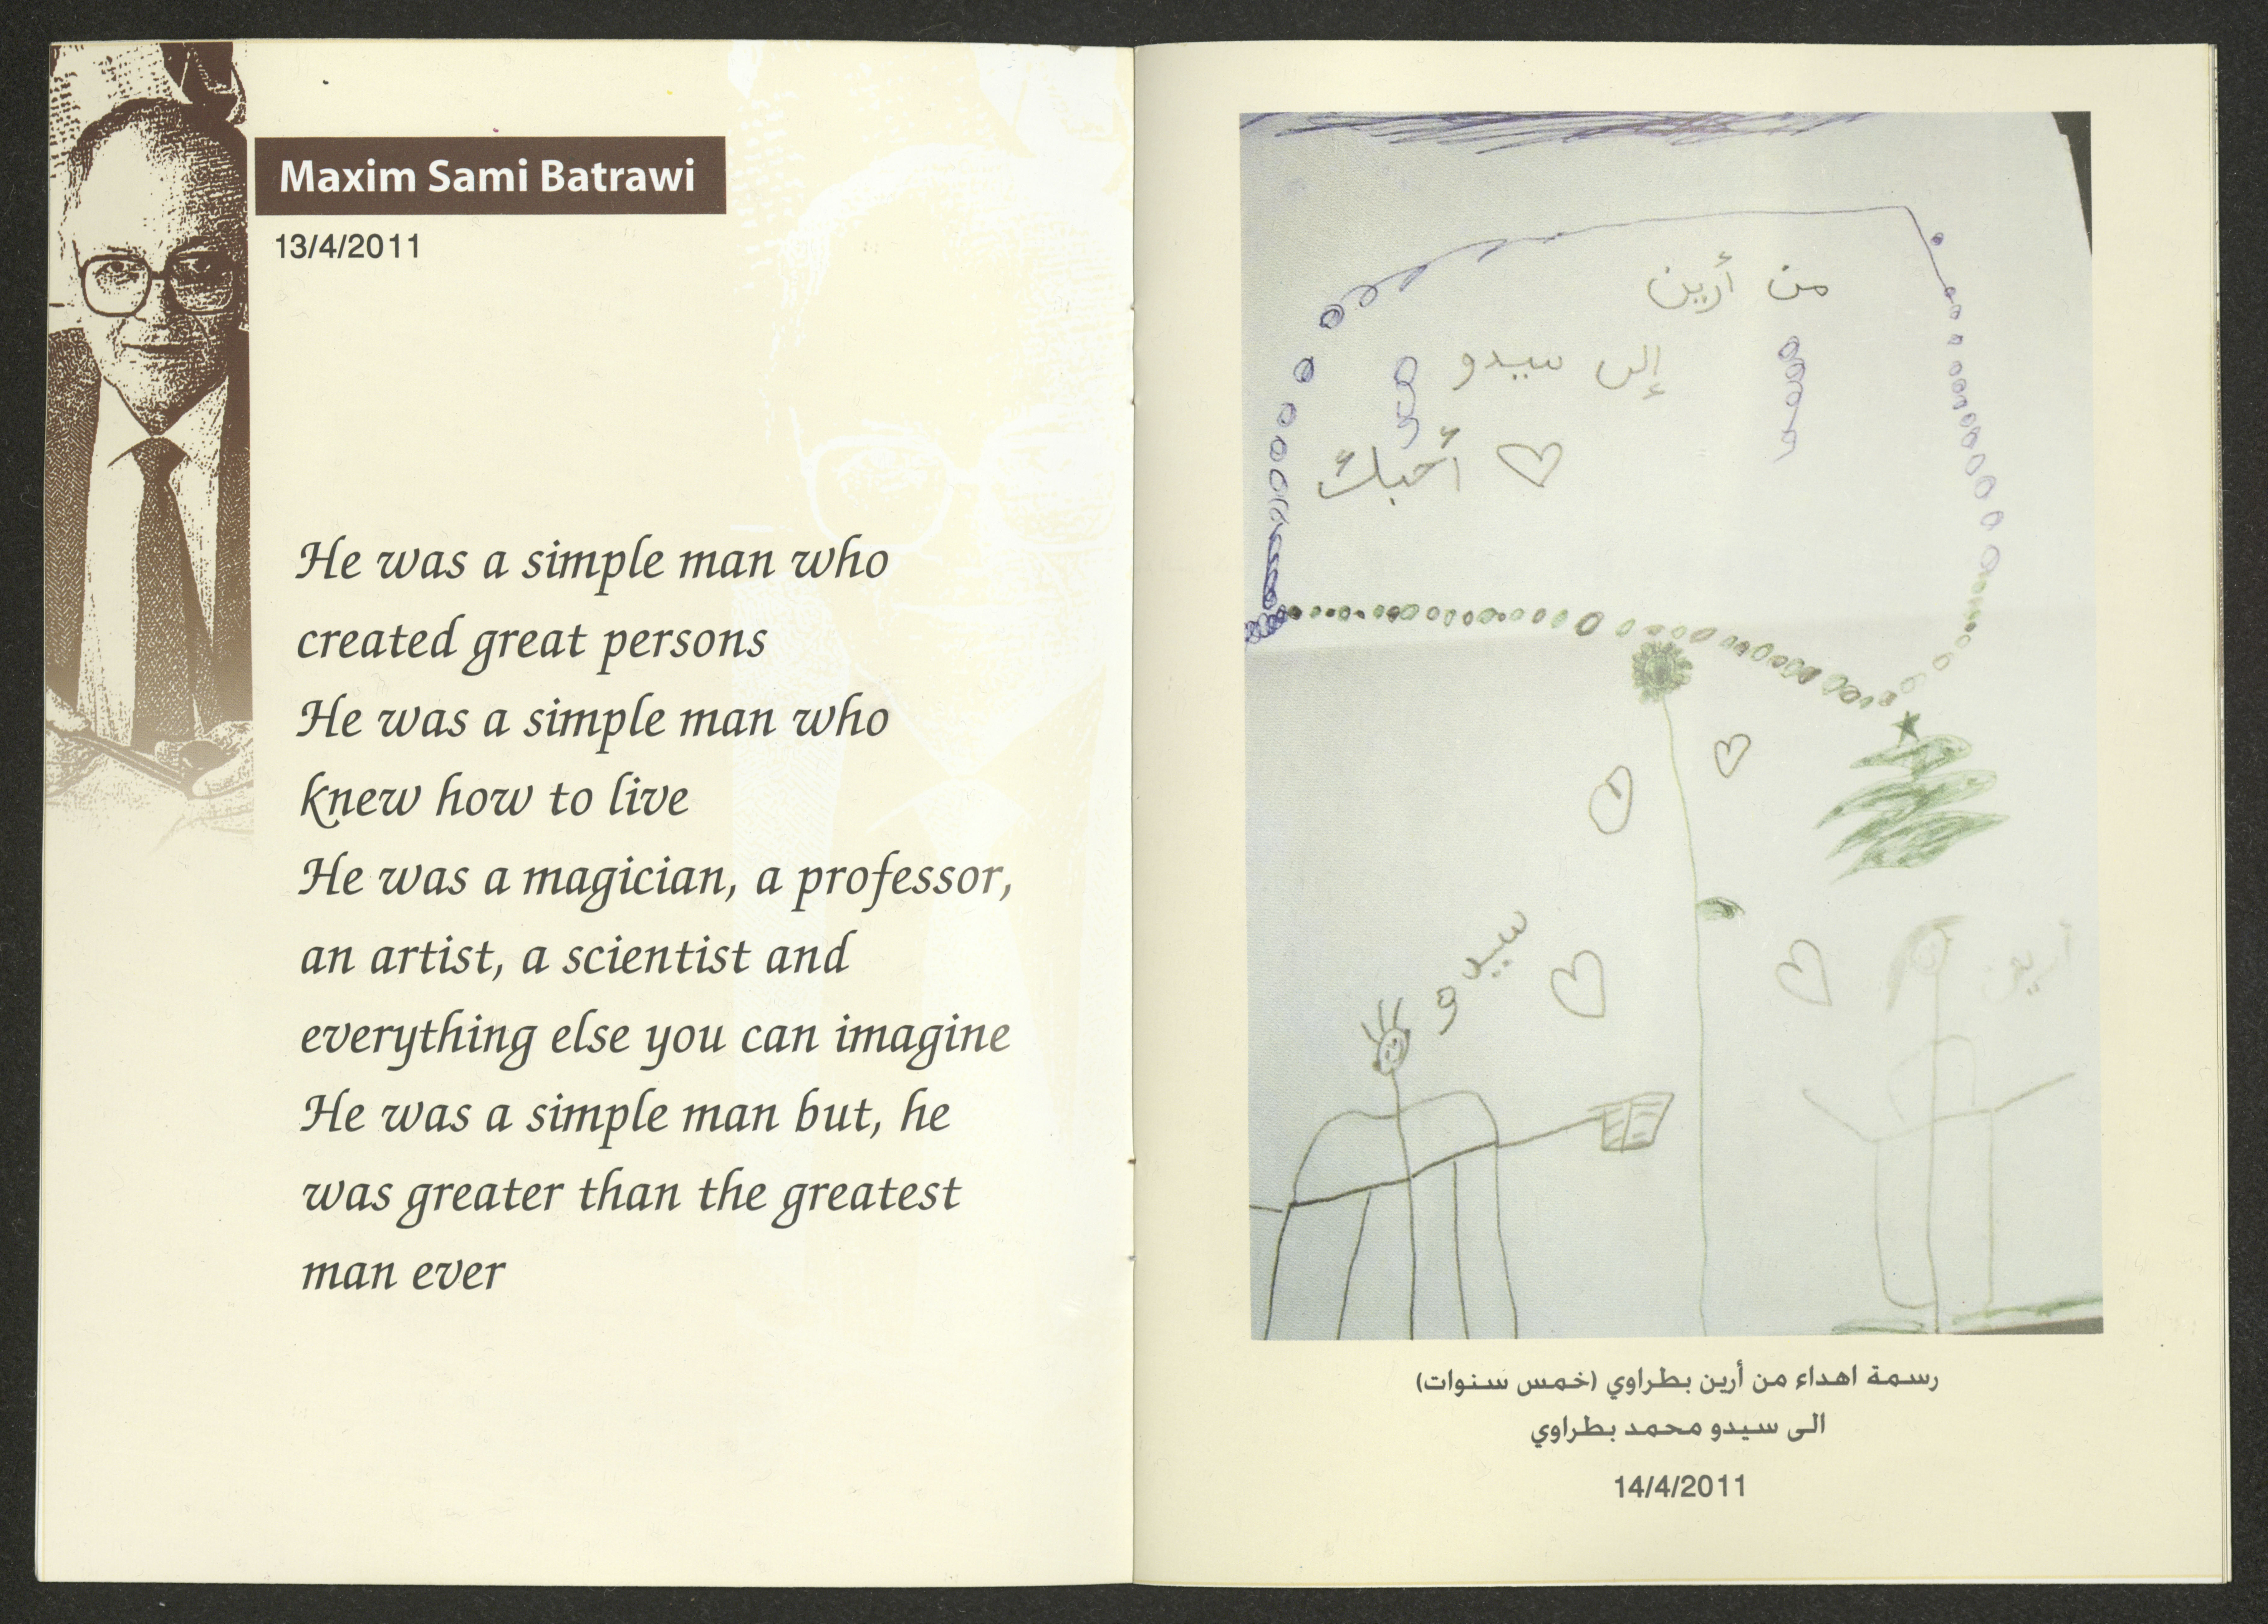 Maxim Sami Batrawi
13/4/2011
He was a simple man who
created great persons
He was a simple man who
knew how to live
He was a magician, a professor,
an artist, a scientist and
everything else you can imagine
He was a simple man but, he
was greater than the greatest
man ever
من أرين
إلى سيدو
أحبك
سيدو
أرين
رسمة اهداء من أرين بطراوي (خمس سنوات)
الى سيدو محمد بطراوي
14/4/2011